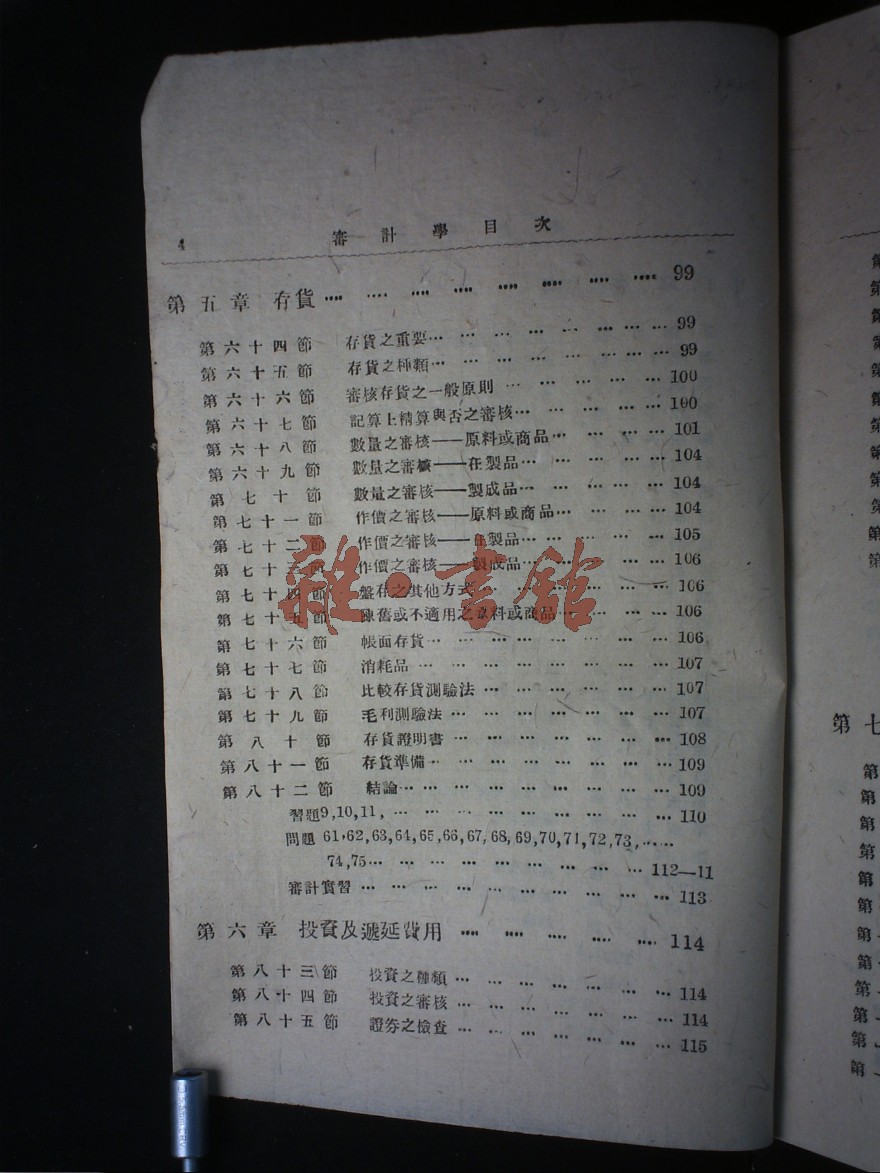 4 審計學目次
第五章 存貨 99
第六十四節 存貨之重要 99
第六十五節 存貨之種類 99
第六十六節 審核存貨之一般原則 100
第六十七節 記算上精算與否之審核 100
第六十八節 數量之審核——原料或商品 101
第六十九節 數量之審核——在製品 104
第七十節 數量之審核——製成品 104
第七十一節 作價之審核——原料或商品 104
第七十二節 作價之審核——在製品 105
第七十三節 作價之審核——製成品 106
第七十四節 盤存之其他方式 106
第七十五節 陳舊或不適用之原料或商品 106
第七十六節 帳面存貨 106
第七十七節 消耗品 107
第七十八節 比較存貨測驗法 107
第七十九節 毛利測驗法 107
第八十節 存貨證明書 108
第八十一節 存貨準備 109
第八十二節 結論 109
習題9,10,11, 110
問題 61,62,63,64,65,66,67,68,69,70,71,72,73,
74,75 112—11
審計實習 113
第六章 投資及遞延費用 114
第八十三節 投資之種類 114
第八十四節 投資之審核 114
第八十五節 證券之檢查 115
雜·書館
第七